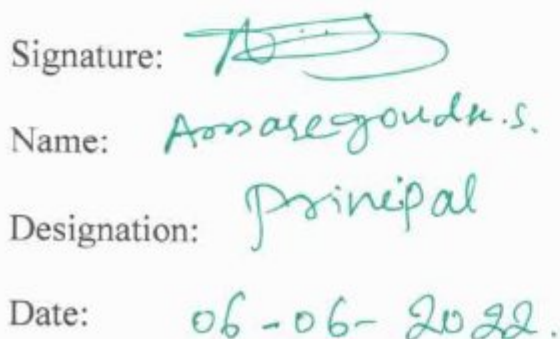 Signature:
Name: Amaregouda.s.
Designation: Principal
Date: 06-06-2022.